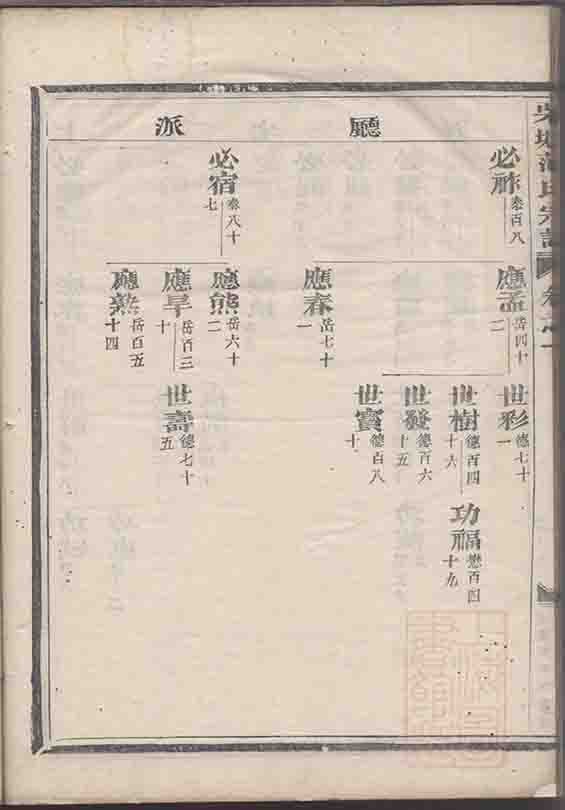 宗譜
廳派
必祚 泰百八
必宿 泰八十七
應孟 岳四十二
應春 岳七十一
應熊 岳六十二
應旱 岳百三十
應熱 岳百五十四
世彩 德七十一
世樹 德百四十六
世發 德百六十五
世寶 德百八十
世壽 德七十五
功福 懋百四十九